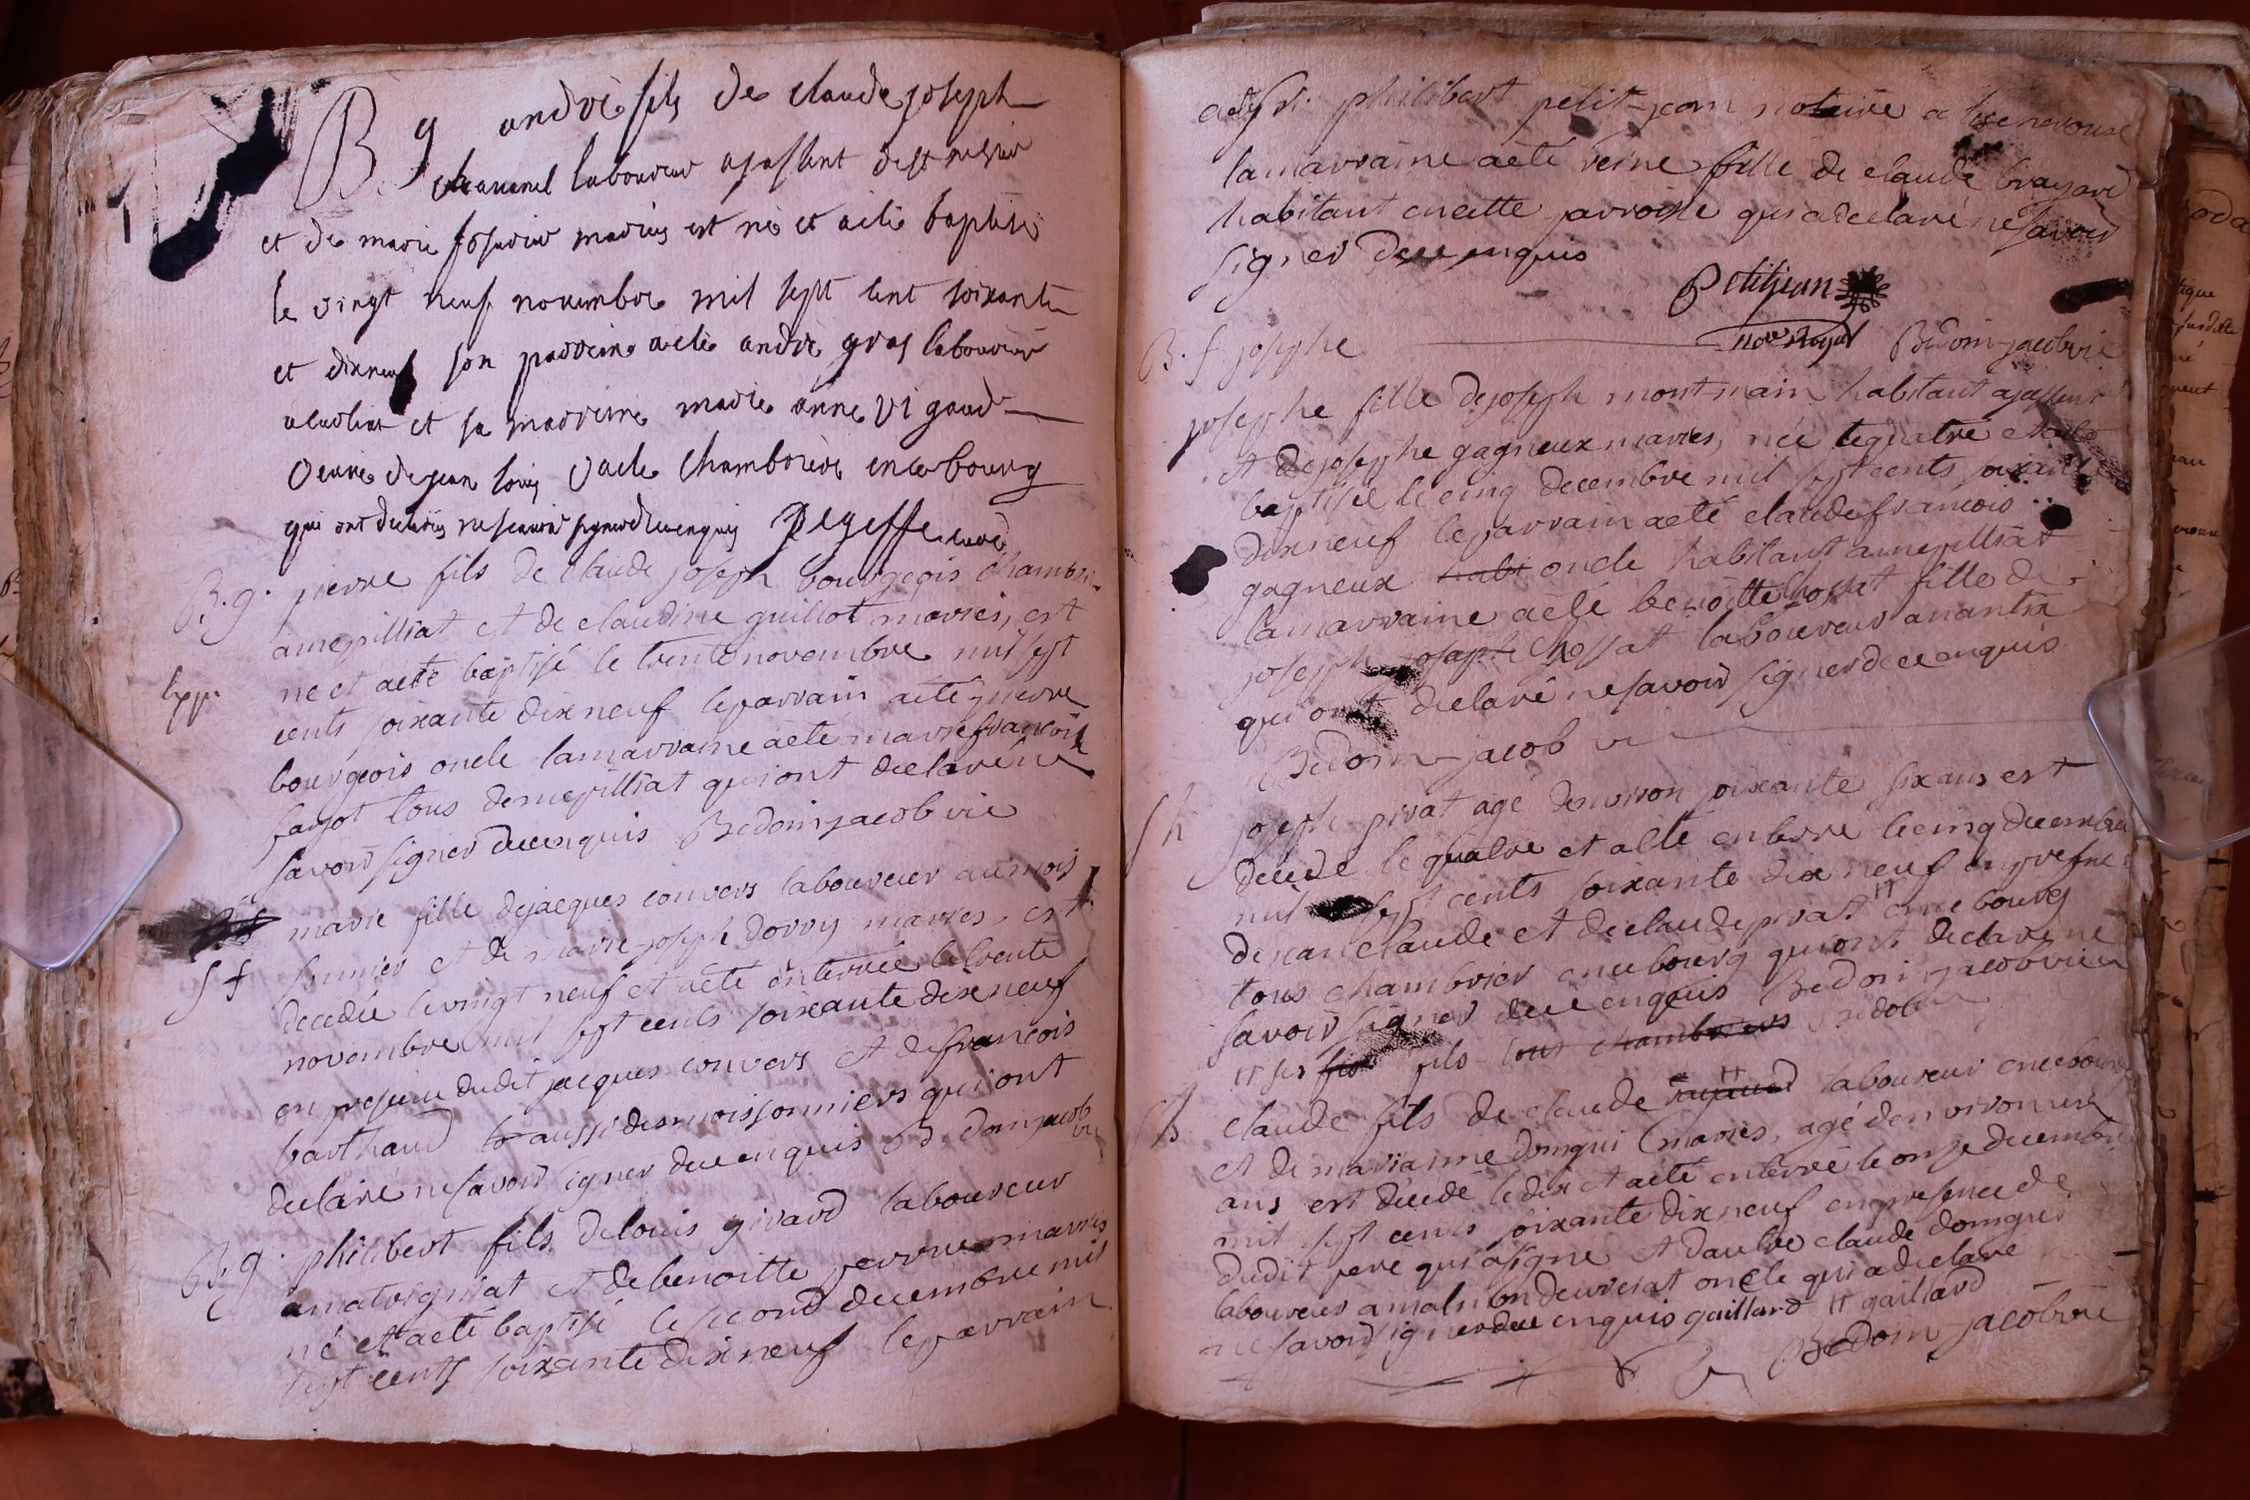 B. g andré fils de claude joseph
chavanel laboureur
et de marie mariés est né et a eté baptisé
le vingt neuf novembre mil sept cent soixante
et dixneuf son parrein a eté andré gros laboureur
et sa marreine marie anne vigaud
veuve de jean louis chamboriere en ce bourg
qui ont declarés ne scavoir signer de ce enquis curé
B. g. pierre fils de claude joseph bourgeois chambri
a mepilliat et de claudine guillot mariés, est
né et a eté baptisé le trente novembre mil sept
cents soixante dix neuf le parrain a eté pierre
bourgeois oncle la marraine a eté marie françoise
fayot tous de mepilliat qui ont declaré ne
savoir signer de ce enquis Bedoin jacob vic
marie fille de jacques convers laboureur aumois
S f sonnier et de marie joseph dorry mariés, est
decedée le vingt neuf et a eté enterrée le trente
novembre mil sept cents soixante dix neuf
en presence dudit jacques convers et de françois
barthaud aussi des moissonniers qui ont
declaré ne savoir signer de ce enquis Bedoin jacob vic
B. g. philibert fils de louis girard laboureur
a matrignat et de benoitte perrue mariés
né et a eté baptisé le second decembre mil
sept cents soixante dix neuf le parrain
a eté sr. philibert petit-jean notaire a
la marraine a eté reine fille de claude brayard
habitant en cette parroisse qui a declaré ne savoir
signer de ce enquis
Petitjean
nore Royal
B. f josephe Bedoin jacob vic
josephe fille de joseph montmain habitant a jassens
et de josephe gagneux mariés, née le quatre et a eté
baptisée le cinq decembre mil sept cents soixante
dix neuf le parrain a eté claude françois
gagneux habt oncle habitant a mepilliat
la marraine a eté benoitte chossat fille de
joseph joseph chossat laboureur a nantix
qui ont declaré ne savoir signer de ce enquis
Bedoin jacob vi
S h joseph pivat agé denviron soixante six ans est
decedé le quatre et a eté enterré le cinq decembre
mil sept cents soixante dix neuf en presence
de jean claude et de claude pivat # en ce bourg
tous chambrier en ce bourg qui ont declaré ne
savoir signer de ce enquis Bedoin jacob vic
# ses fils tous chambriers
S h claude fils de claude # laboureur en ce bourg
et de marianne domgui mariés, agé denviron
ans est decedé le dix et a eté enterré le onze decembre
mil sept cents soixante dix neuf en presence de
dudit pere qui a signé et dautre claude domgui
laboureur a oncle qui a declaré
ne savoir signer de ce enquis gaillard # gaillard
Bedoin jacob vic